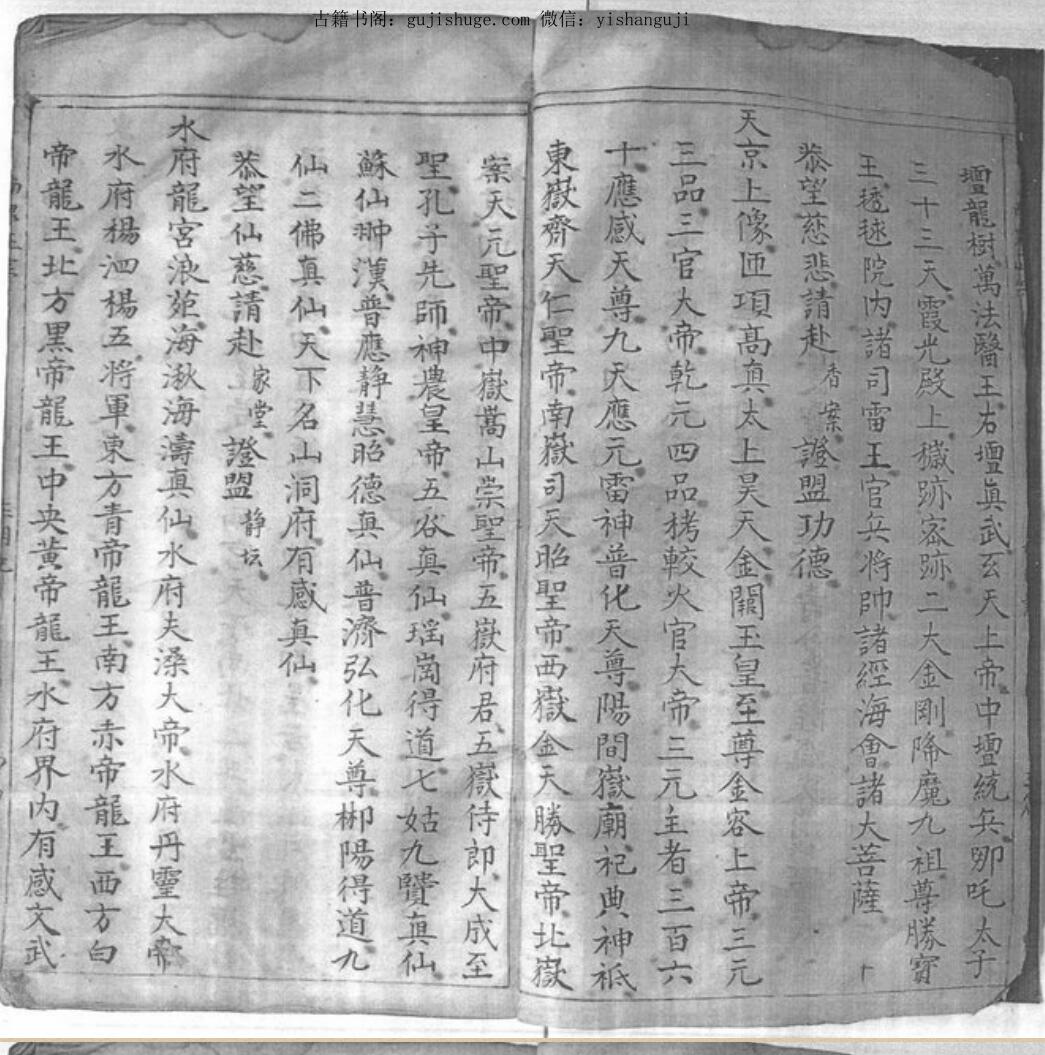 古籍书阁：gujishuge.com 微信：yishanguji
壇龍樹萬法醫王右壇真武玄天上帝中壇統兵哪吒太子
三十三天霞光殿上穢跡宻跡二大金剛降魔九祖尊勝寳
王䞬毬院内諸司雷王官兵将帥諸經海會諸大菩薩
恭望慈悲請赴香案證盟功德
天京上像匝項髙真太上昊天金闕玉皇至尊金容上帝三元
三品三官大帝乾元四品栲較火官大帝三元主者三百六
十應感天尊九天應元雷神普化天尊陽間嶽廟祀典神祇
東嶽齊天仁聖帝南嶽司天昭聖帝西嶽金天勝聖帝北嶽
案天元聖帝中嶽嵩山崇聖帝五嶽府君五嶽侍郎大成至
聖孔子先師神農皇帝五谷真仙瑶崗得道七姑九賢真仙
蘇仙翀漢普應静慧昭德真仙普濟弘化天尊郴陽得道九
仙二佛真仙天下名山洞府有感真仙
恭望仙慈請赴家堂證盟静坛
水府龍宮浪苑海湫海濤真仙水府夫澡大帝水府丹靈大帝
水府楊泗楊五将軍東方青帝龍王南方赤帝龍王西方白
帝龍王北方黑帝龍王中央黄帝龍王水府界内有感文武